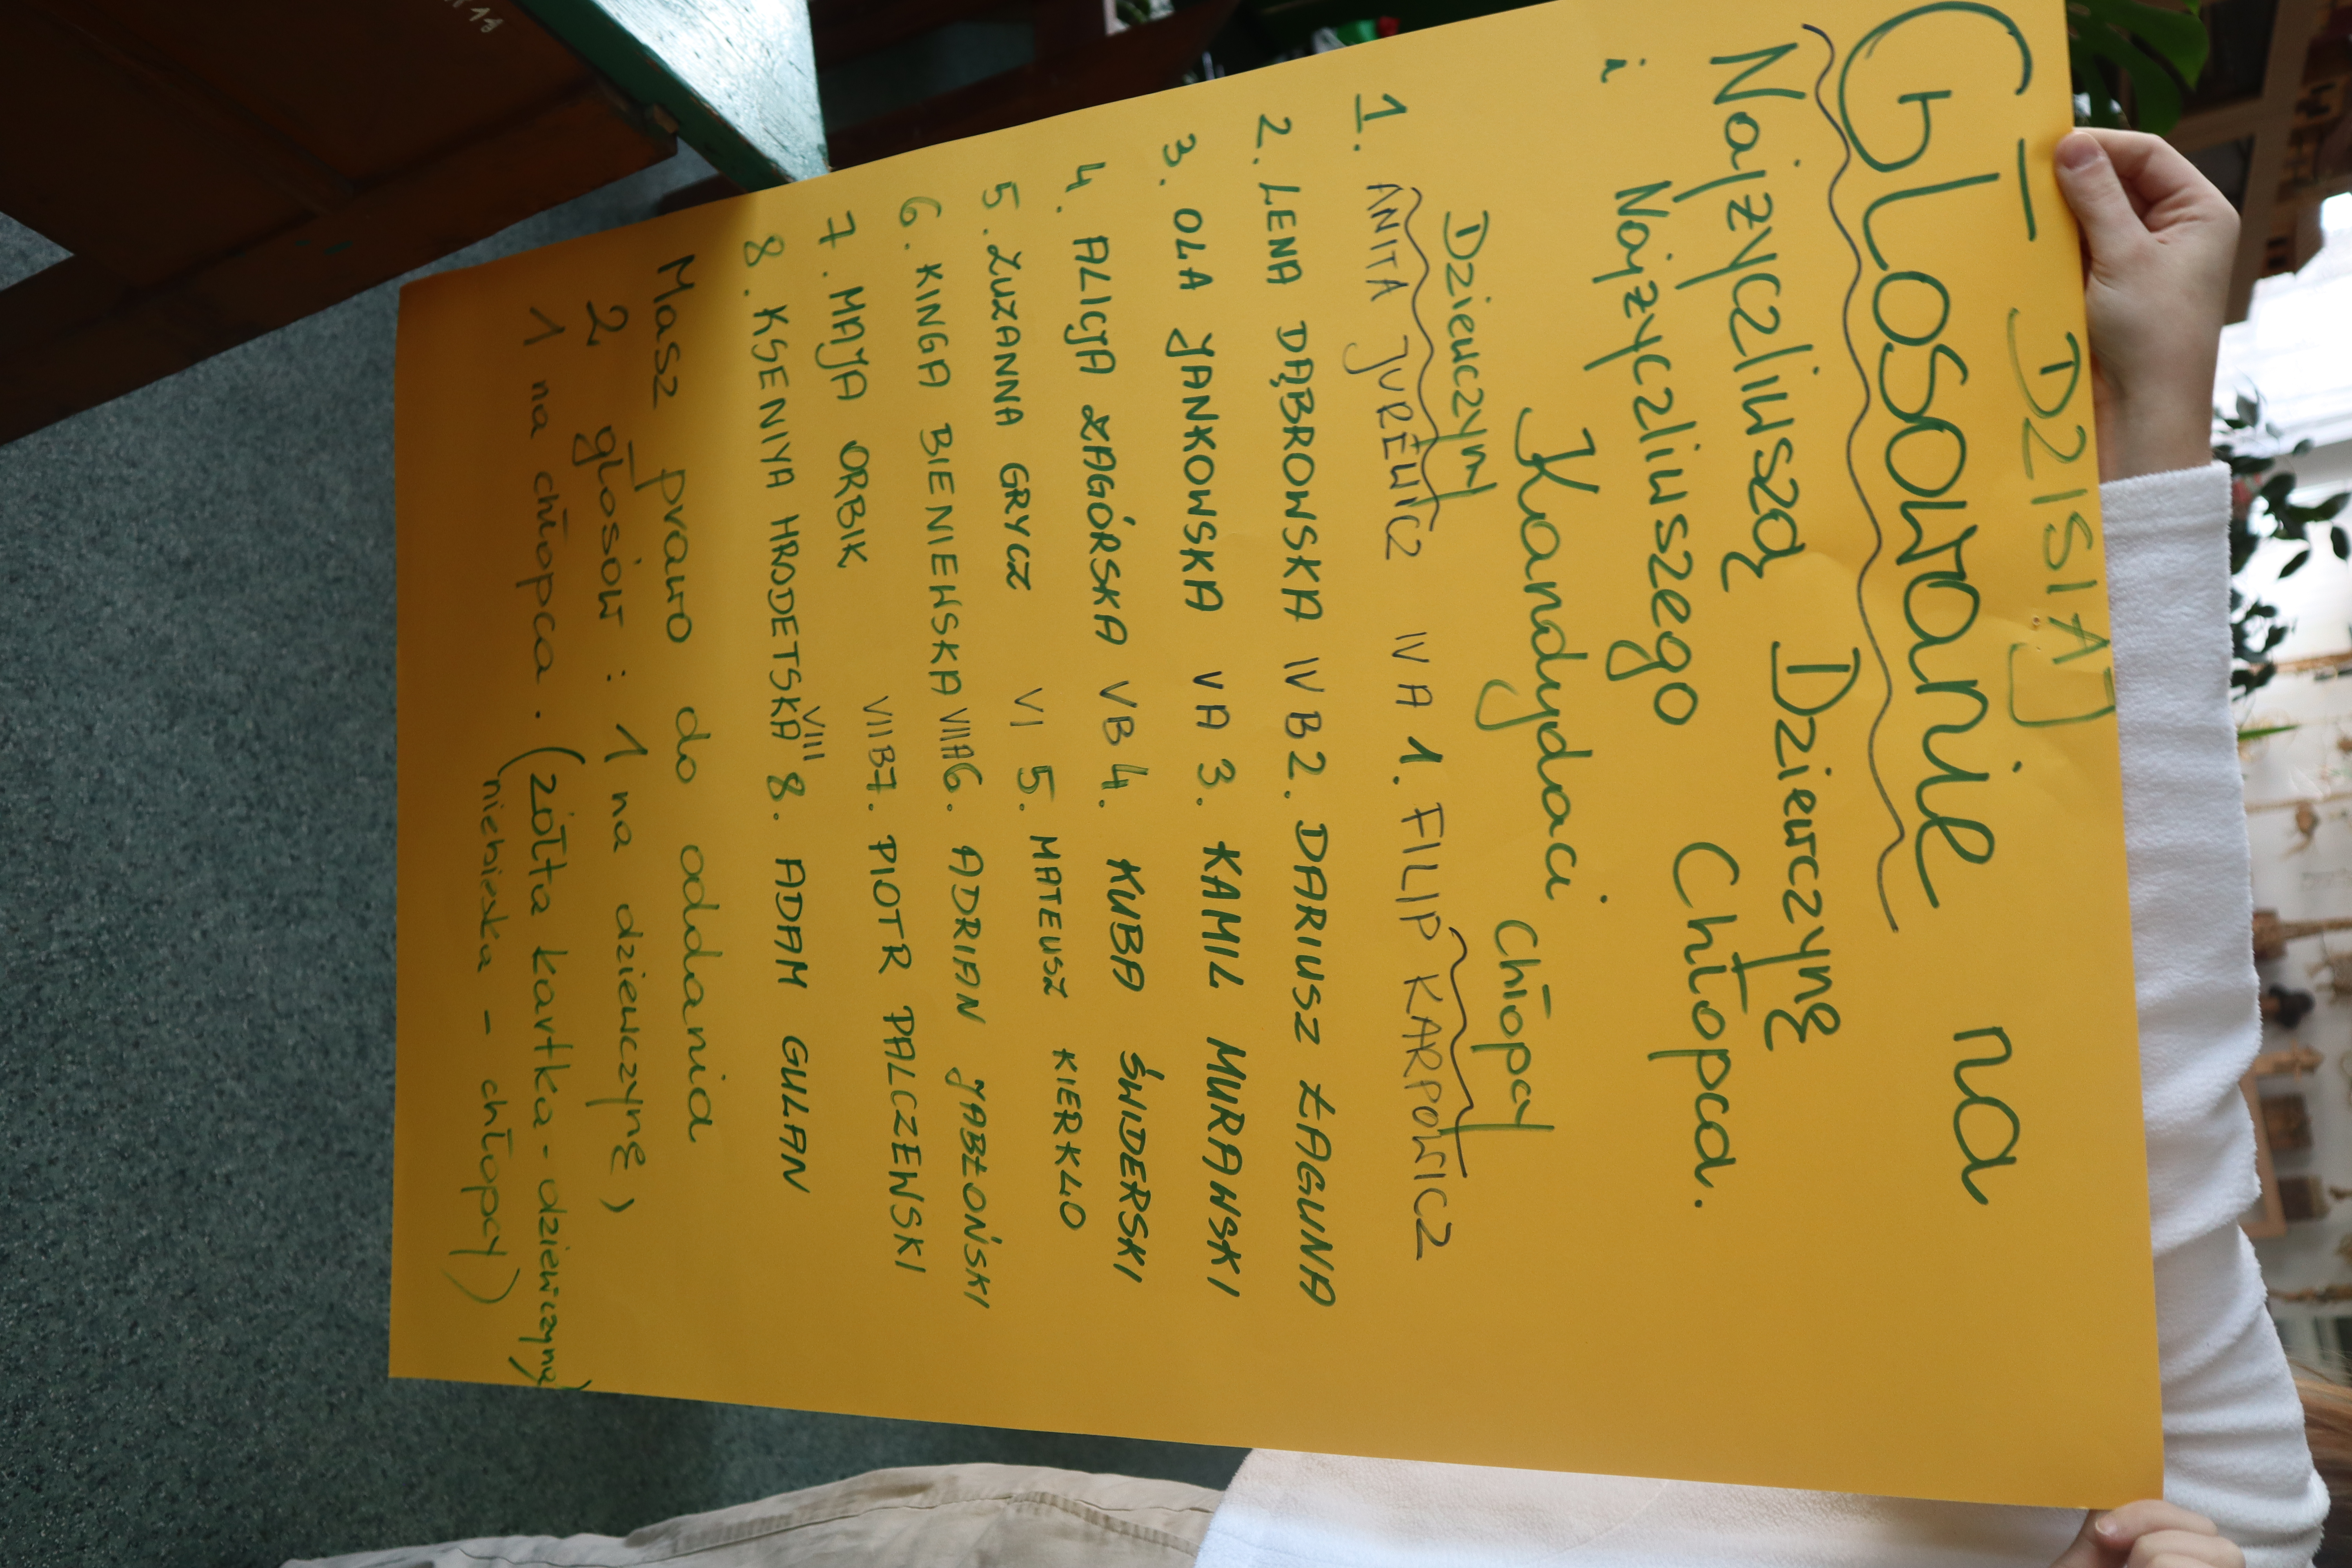 DZISIAJ
Głosowanie na
Najżyczliwszą Dziewczynę
i Najżyczliwszego Chłopca.
Kandydaci
Dziewczyny Chłopcy
1. ANITA JUREWICZ IV A 1. FILIP KARPOWICZ
2. LENA DĄBROWSKA IV B 2. DARIUSZ ŁAGUNA
3. OLA JANKOWSKA V A 3. KAMIL MURAWSKI
4. ALICJA ZAGÓRSKA V B 4. KUBA ŚWIDERSKI
5. ZUZANNA GRYCZ VI 5. MATEUSZ KIERKLO
6. KINGA BIENIEWSKA VII A 6. ADRIAN JABŁOŃSKI
7. MAJA ORBIK VII B 7. PIOTR PALCZEWSKI
8. KSENIYA HRODETSKA VIII 8. ADAM GULAN
Masz prawo do oddania
2 głosów : 1 na dziewczynę)
1 na chłopca. (żółta kartka - dziewczyna)
niebieska - chłopcy)